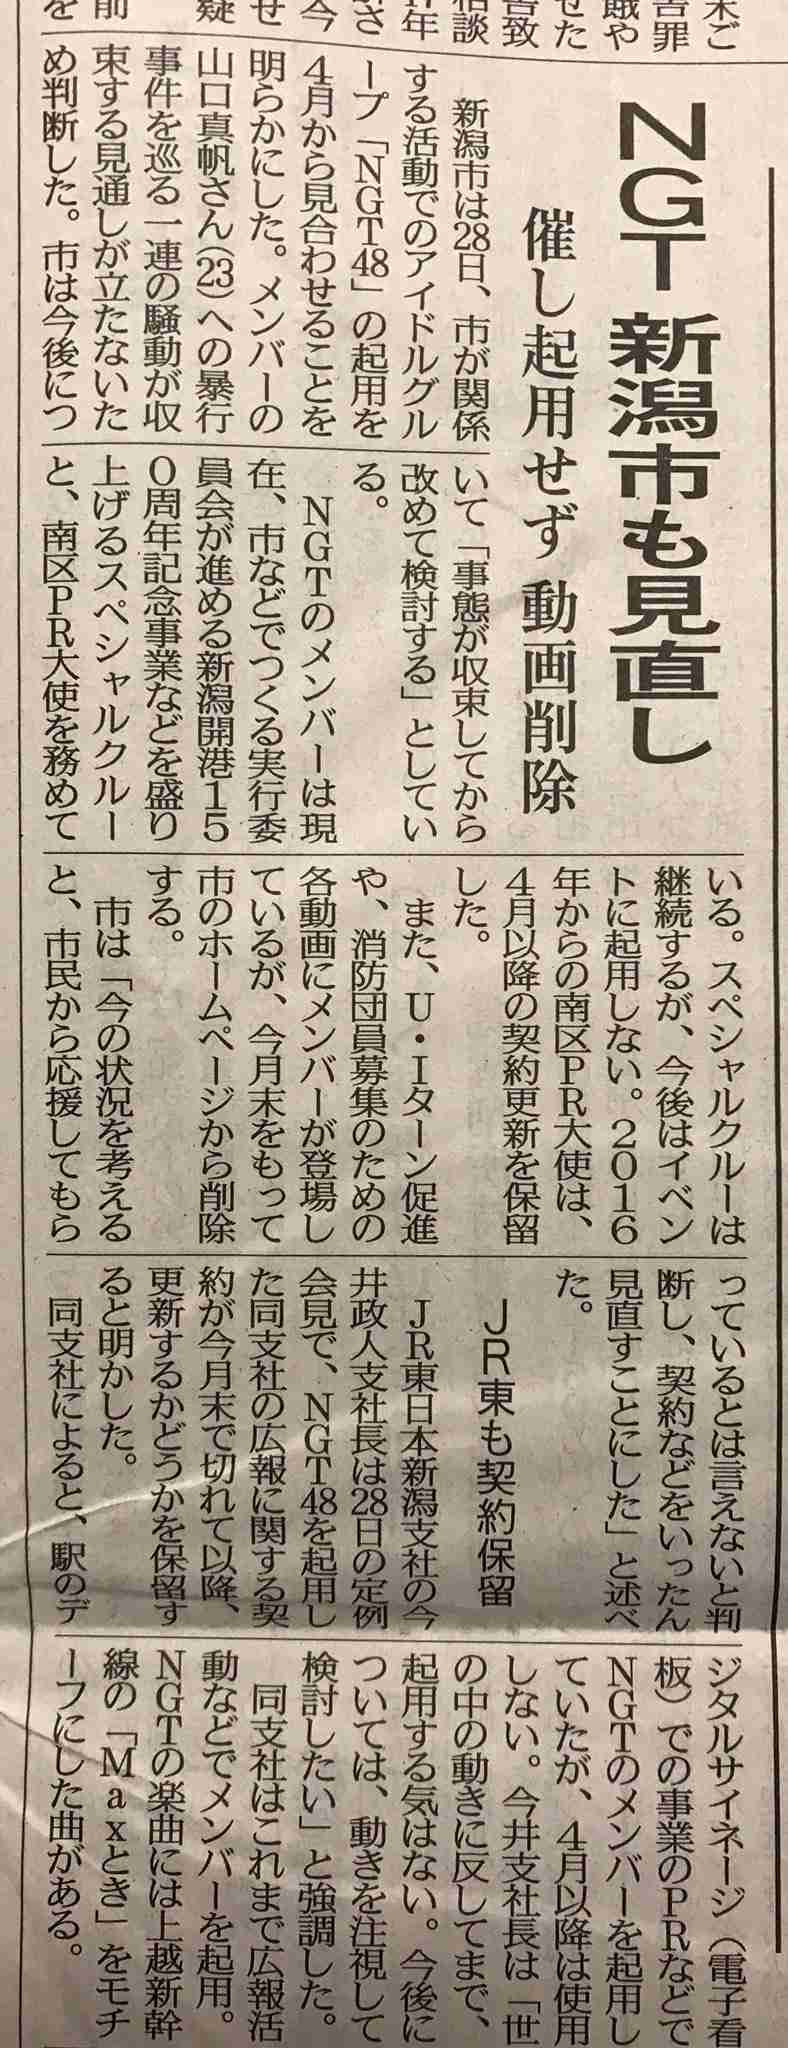 NGT 新潟市も見直し
催し起用せず 動画削除
新潟市は28日、市が関係
する活動でのアイドルグル
ープ「NGT48」の起用を
4月から見合わせることを
明らかにした。メンバーの
山口真帆さん(23)への暴行
事件を巡る一連の騒動が収
束する見通しが立たないた
め判断した。市は今後につ
いて「事態が収束してから
改めて検討する」としてい
る。
NGTのメンバーは現
在、市などでつくる実行委
員会が進める新潟開港15
0周年記念事業などを盛り
上げるスペシャルクルー
と、南区PR大使を務めて
いる。スペシャルクルーは
継続するが、今後はイベン
トに起用しない。2016
年からの南区PR大使は、
4月以降の契約更新を保留
した。
また、U・Iターン促進
や、消防団員募集のための
各動画にメンバーが登場し
ているが、今月末をもって
市のホームページから削除
する。
市は「今の状況を考える
と、市民から応援してもら
っているとは言えないと判
断し、契約などをいったん
見直すことにした」と述べ
た。
JR東も契約保留
JR東日本新潟支社の今
井政人支社長は28日の定例
会見で、NGT48を起用し
た同支社の広報に関する契
約が今月末で切れて以降、
更新するかどうかを保留す
ると明かした。
同支社によると、駅のデ
ジタルサイネージ(電子看
板)での事業のPRなどで
NGTのメンバーを起用し
ていたが、4月以降は使用
しない。今井支社長は「世
の中の動きに反してまで、
起用する気はない。今後に
ついては、動きを注視して
検討したい」と強調した。
同支社はこれまで広報活
動などでメンバーを起用。
NGTの楽曲には上越新幹
線の「Maxとき」をモチ
ーフにした曲がある。